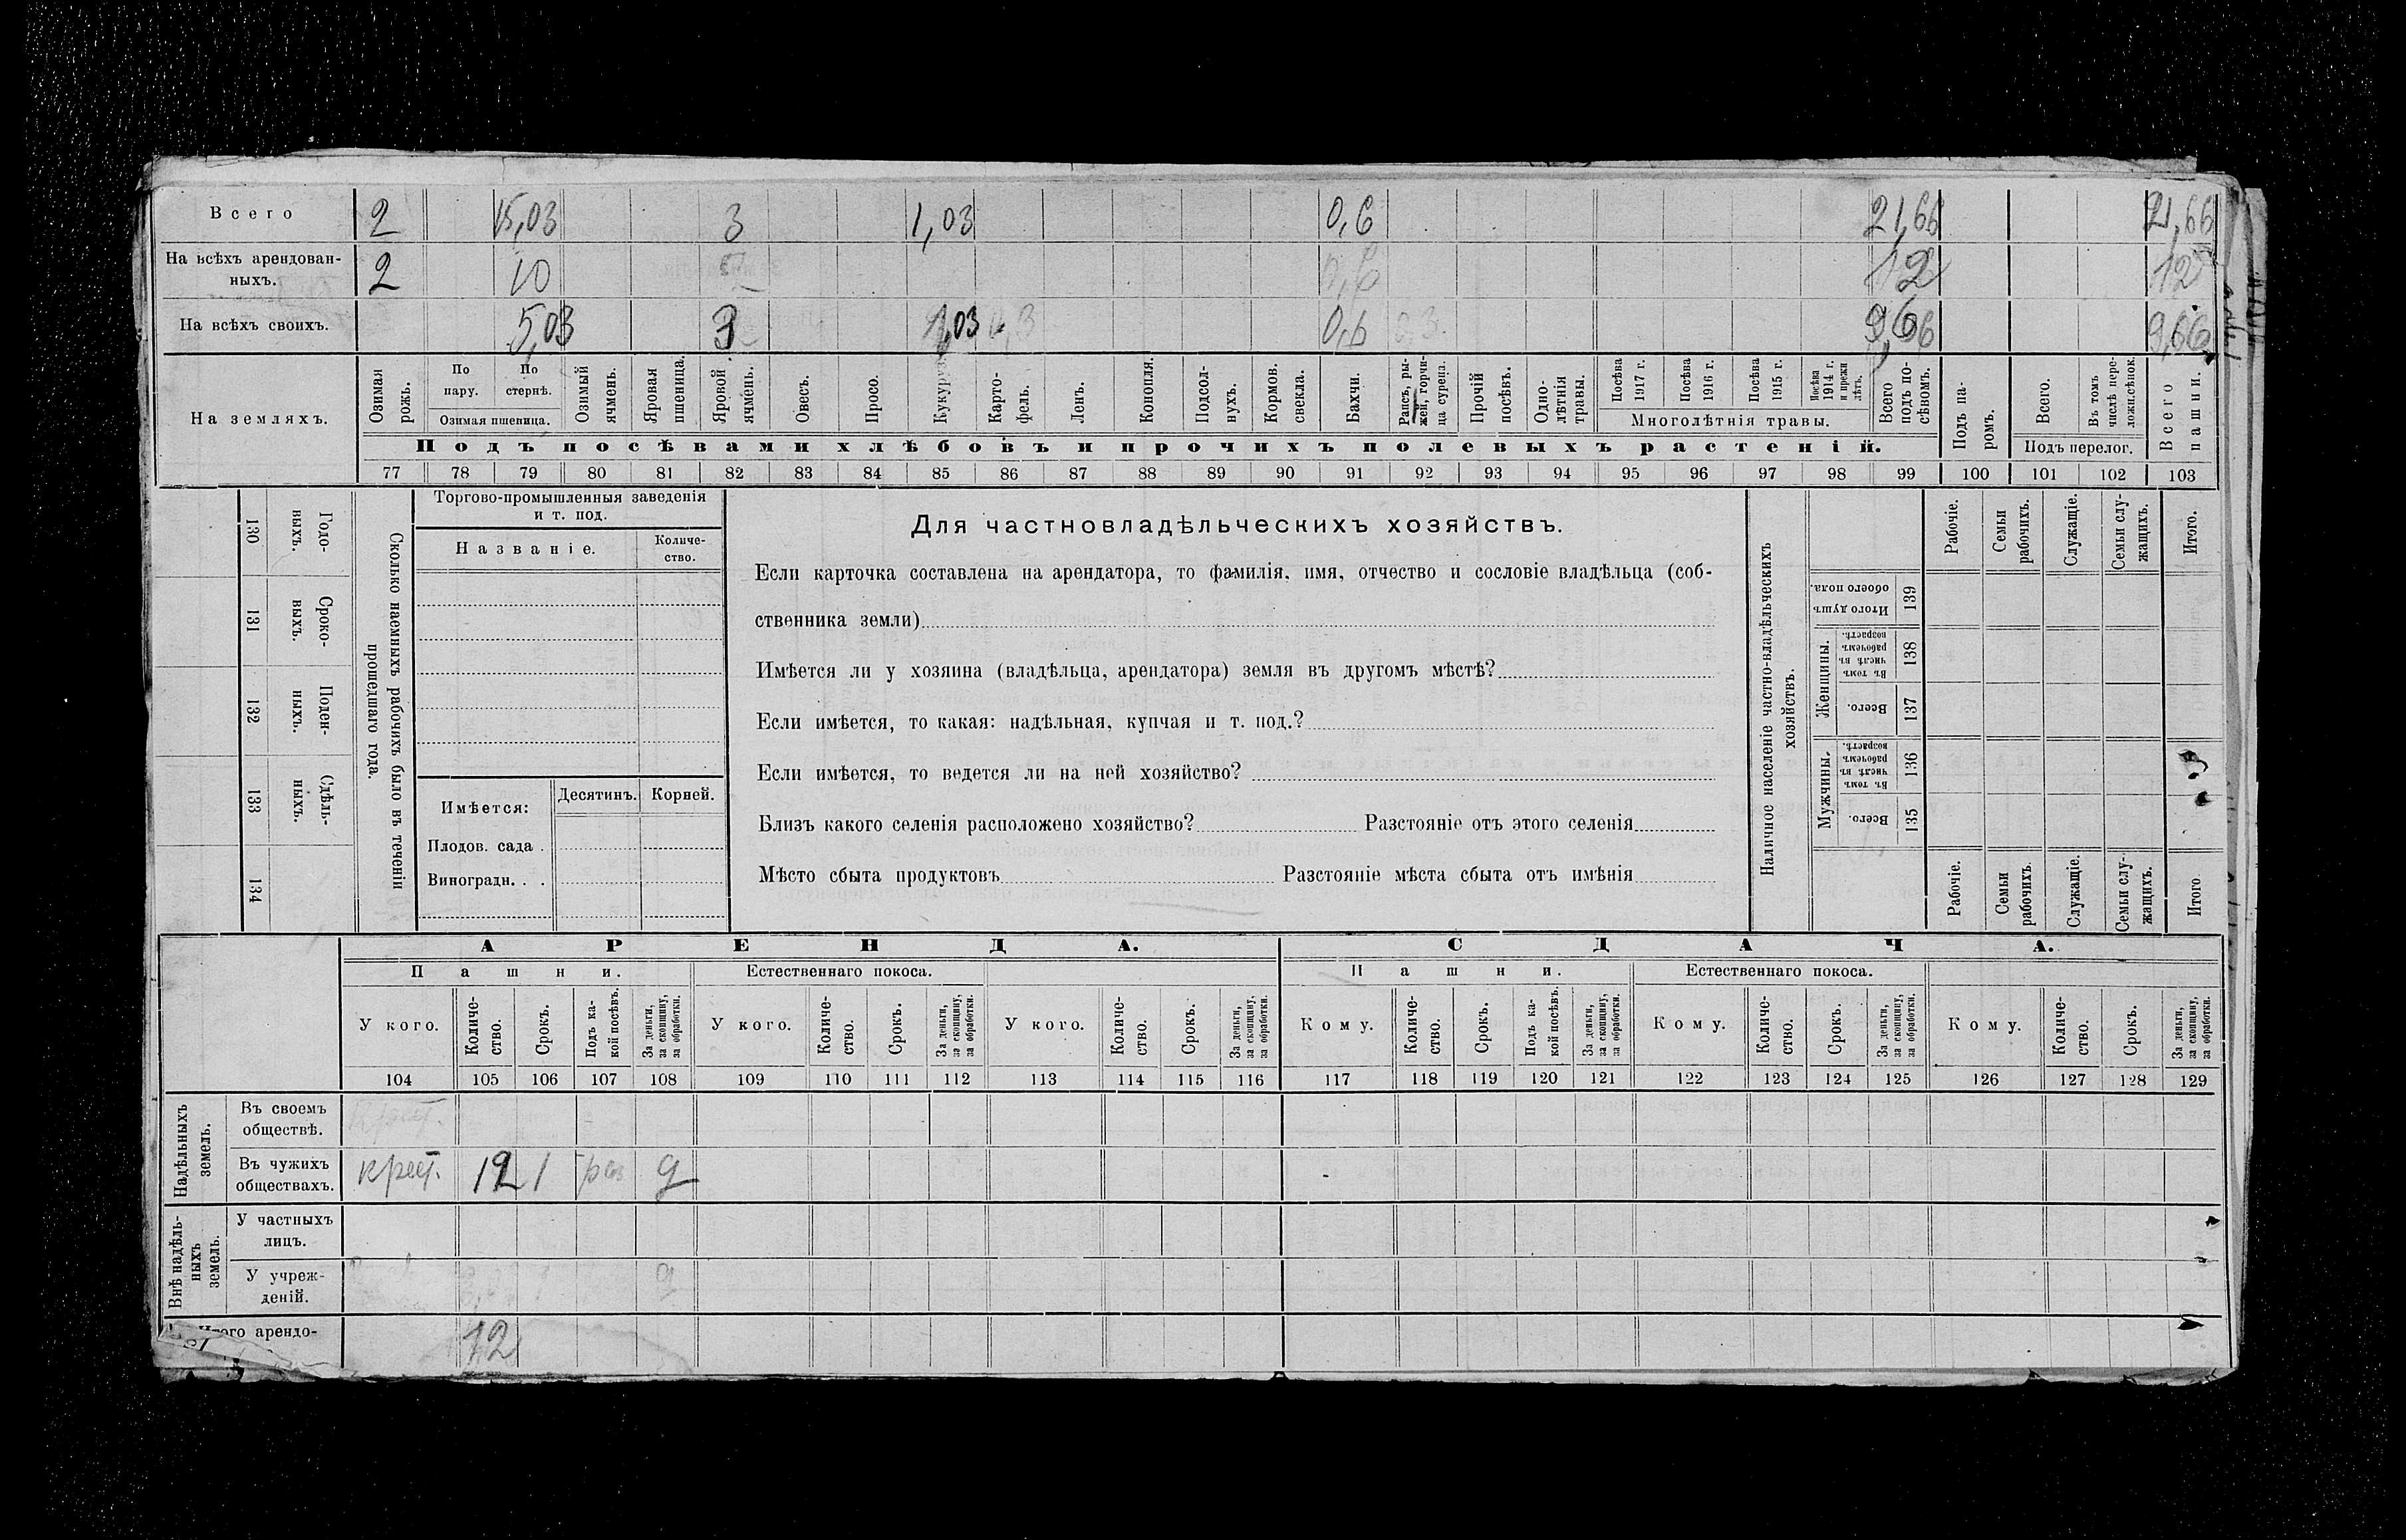 Всего 2 15,03 3 1,03 0,6 21,66 21,66
На всѣхъ арендован-
ныхъ. 2 10 0,6 12 12
На всѣхъ своихъ. 5,03 3 1,03 0,6 9,66 9,66
На земляхъ.
Озимая рожь.
По пару.
По стернѣ.
Озимая пшеница.
Озимый ячмень.
Яровая пшеница.
Яровой ячмень.
Овесъ.
Просо.
Кукуруза
Карто-
фель.
Ленъ.
Конопля.
Подсол-
нухъ.
Кормов.
свекла.
Бахчи.
Рапсъ, ры-
жей, горчи-
ца сурепа.
Прочій
посѣвъ.
Одно-
лѣтнія
травы.
Посѣва
1917 г.
Посѣва
1916 г.
Посѣва
1915 г.
Посѣва
1914 г.
и прежн
лѣтъ.
Многолѣтнія травы.
Всего
подъ по-
сѣвомъ.
Подъ па-
ромъ.
Всего.
Въ томъ
числѣ пере-
ложн.сѣнок.
Подъ перелог.
Всего
пашни.
Подъ посѣвами хлѣбовъ и прочихъ полевыхъ растеній.
77 78 79 80 81 82 83 84 85 86 87 88 89 90 91 92 93 94 95 96 97 98 99 100 101 102 103
130 Годо-
ныхъ.
131 Сроко-
выхъ.
132 Поден-
ныхъ.
133 Сдѣль-
ныхъ.
134
Сколько наемныхъ рабочихъ было въ теченіи
прошедшаго года.
Торгово-промышленныя заведенія
и т. под.
Названіе.
Количе-
ство.
Имѣется:
Десятинъ. Корней.
Плодов. сада .
Виноградн. . .
Для частновладѣльческихъ хозяйствъ.
Если карточка составлена на арендатора, то фамилія, имя, отчество и сословіе владѣльца (соб-
ственника земли)
Имѣется ли у хозяина (владѣльца, арендатора) земля въ другомъ мѣстѣ?
Если имѣется, то какая: надѣльная, купчая и т. под.?
Если имѣется, то ведется ли на ней хозяйство?
Близъ какого селенія расположено хозяйство? Разстояніе отъ этого селенія
Мѣсто сбыта продуктовъ Разстояніе мѣста сбыта отъ имѣнія
Наличное населеніе частно-владѣльческихъ
хозяйствъ.
Рабочіе.
Семьи
рабочихъ.
Служащіе.
Семьи слу-
жащихъ.
Итого.
Итого душъ
обоего пола. 139
Женщины.
Въ томъ
числѣ въ
рабочемъ
возрастѣ. 138
Всего. 137
Мужчины.
Въ томъ
числѣ въ
рабочемъ
возрастѣ. 136
Всего. 135
Рабочіе.
Семьи
рабочихъ.
Служащіе.
Семьи слу-
жащихъ.
Итого
АРЕНДА. СДАЧА.
Пашни. Естественнаго покоса. Пашни. Естественнаго покоса.
У кого.
Количе-
ство.
Срокъ.
Подъ ка-
кой посѣвъ.
За деньги,
за скопщину,
за обработки.
У кого.
Количе-
ство.
Срокъ.
За деньги,
за скопщину,
за обработки.
У кого.
Количе-
ство.
Срокъ.
За деньги,
за скопщину,
за обработки.
Кому.
Количе-
ство.
Срокъ.
Подъ ка-
кой посѣвъ.
За деньги,
за скопщину,
за обработки.
Кому.
Количе-
ство.
Срокъ.
За деньги,
за скопщину,
за обработки.
Кому.
Количе-
ство.
Срокъ.
За деньги,
за скопщину,
за обработки.
104 105 106 107 108 109 110 111 112 113 114 115 116 117 118 119 120 121 122 123 124 125 126 127 128 129
Надѣльныхъ
земель.
Въ своемъ
обществѣ.
Въ чужихъ
обществахъ. крест. 12 1 роз д
Внѣ надѣль-
ныхъ
земель.
У частныхъ
лицъ.
У учреж-
деній. д
Итого арендо-
12